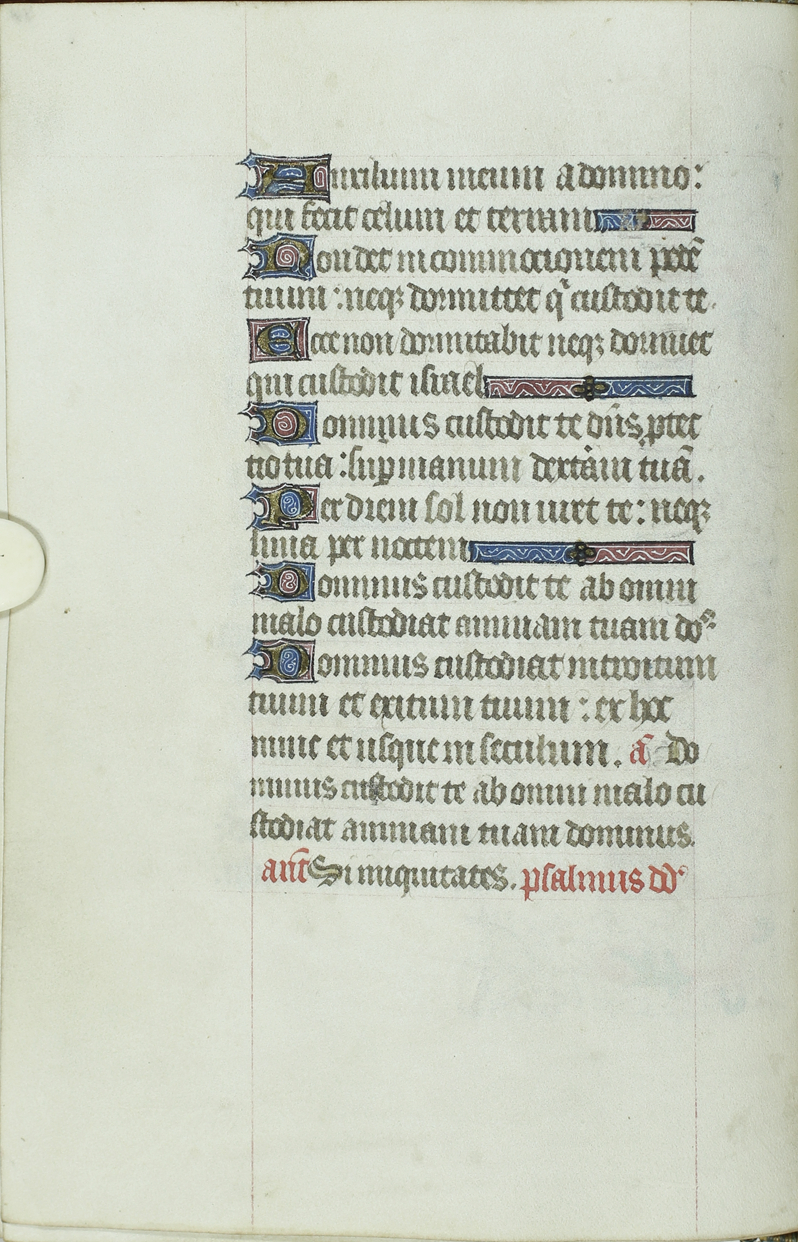 Auxilium meum a domino:
qui fecit celum et terram
Non det in commocionem pedē
tuum : neqꝫ dormittet q̄ custodit te.
Ecce non dormitabit neqꝫ dormiet
qui custodit israel
Dominus custodit te dn̄s ꝓtec
tio tua : suꝑ manum dextām tuā.
Per diem sol non uret te : neqꝫ
luna per noctem
Dominus custodit te ab omni
malo custodiat animam tuam doˢ
Dominus custodiat introitum
tuum et exitum tuum : ex hoc
nunc et usque in seculum. a᷑ Do
minus custodit te ab omni malo cu
stodiat animam tuam dominus.
ant̄ Si iniquitates. psalmus dd̄